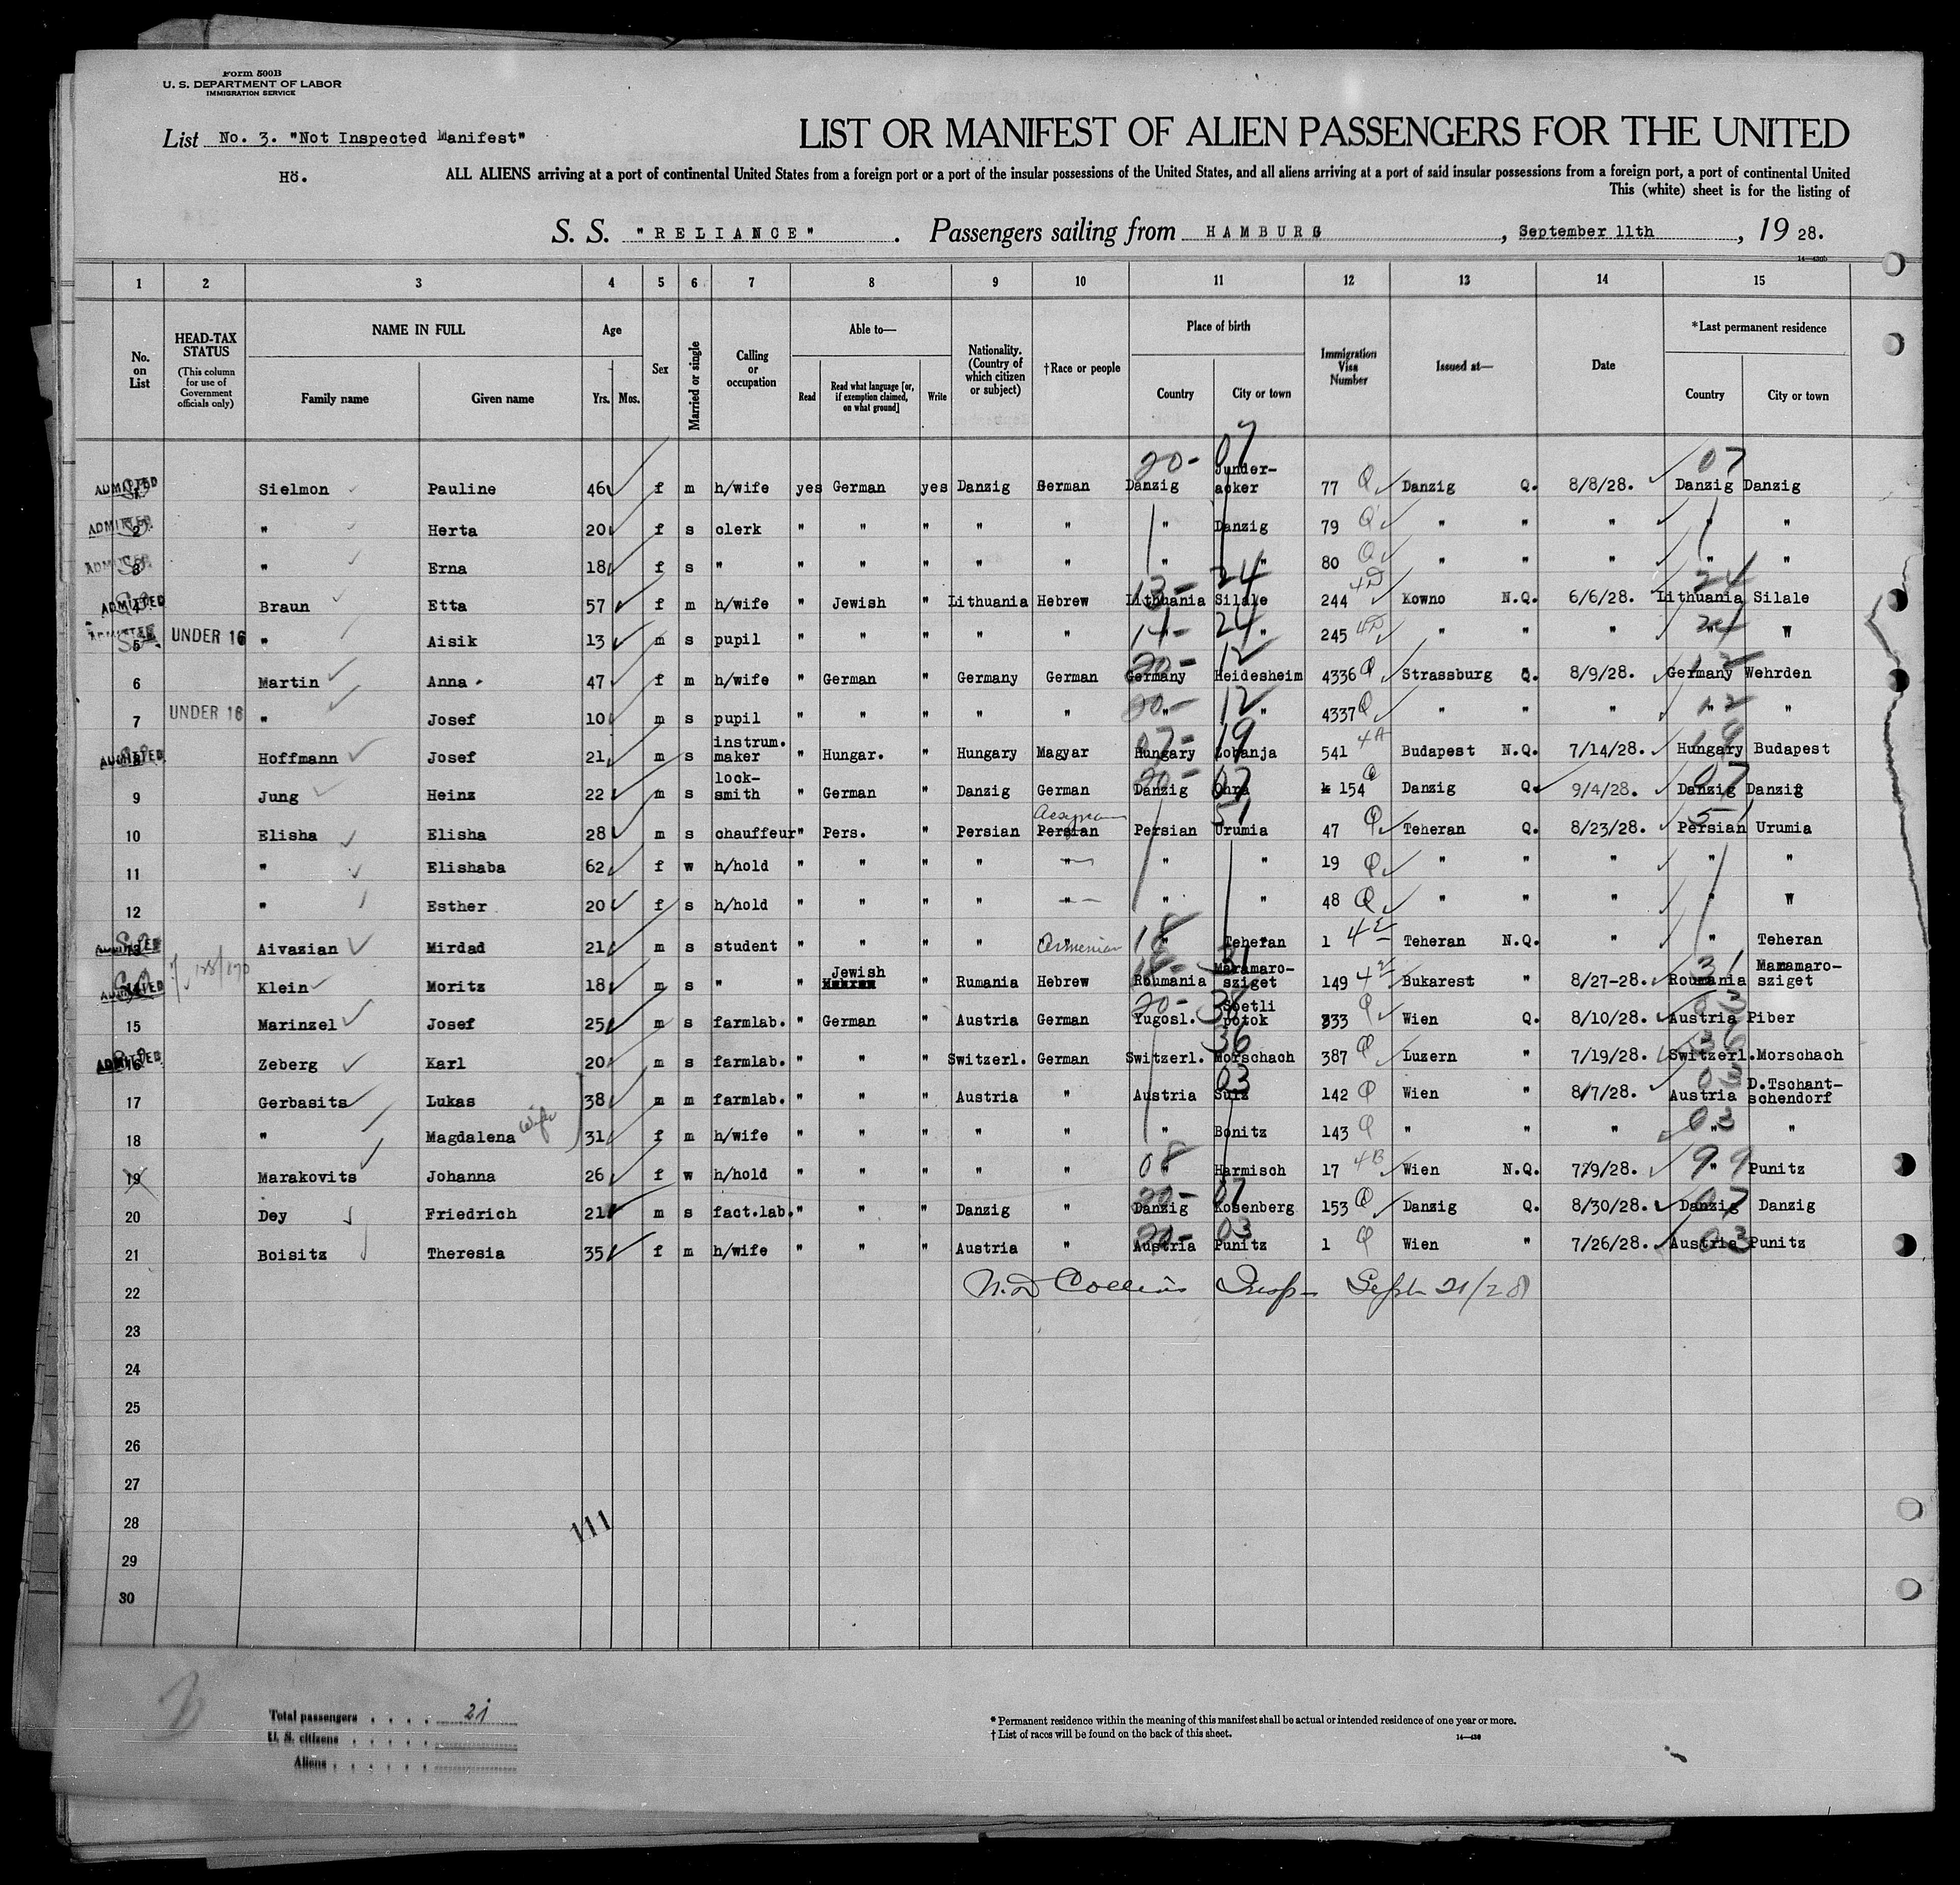 Form 500B
U. S. DEPARTMENT OF LABOR
IMMIGRATION SERVICE
List No. 3. "Not Inspected Manifest"
LIST OR MANIFEST OF ALIEN PASSENGERS FOR THE UNITED
Hö.
ALL ALIENS arriving at a port of continental United States from a foreign port or a port of the insular possessions of the United States, and all aliens arriving at a port of said insular possessions from a foreign port, a port of continental United
This (white) sheet is for the listing of
S. S. "RELIANCE" . Passengers sailing from HAMBURG , September 11th , 19 28.
1 2 3 4 5 6 7 8 9 10 11 12 13 14 15
No. on List
HEAD-TAX STATUS (This column for use of Government officials only)
NAME IN FULL Family name Given name
Age Yrs. Mos.
Sex
Married or single
Calling or occupation
Able to— Read Read what language [or, if exemption claimed, on what ground] Write
Nationality. (Country of which citizen or subject)
†Race or people
Place of birth Country City or town
Immigration Visa Number
Issued at—
Date
*Last permanent residence Country City or town
20- 07 07
ADMITTED Sielmon Pauline 46 f m h/wife yes German yes Danzig German Danzig Sunder-acker 77 Q Danzig Q. 8/8/28. Danzig Danzig
ADMITTED 2 " Herta 20 f s clerk " " " " " " Danzig 79 Q " " " " "
ADMITTED 3 " Erna 18 f s " " " " " " " " 80 Q " " " " "
ADMITTED 4 Braun Etta 57 f m h/wife " Jewish " Lithuania Hebrew 13- Lithuania 24 Silale 244 4D Kowno N.Q. 6/6/28. 24 Lithuania Silale
ADMITTED 5 UNDER 16 " Aisik 13 m s pupil " " " " " 14- " 24 " 245 4D " " " 24 " W
6 Martin Anna 47 f m h/wife " German " Germany German 20- Germany 12 Heidesheim 4336 Q Strassburg Q. 8/9/28. 12 Germany Wehrden
7 UNDER 16 " Josef 10 m s pupil " " " " " 20- " 12 " 4337 Q " " " 12 " "
ADMITTED 8 Hoffmann Josef 21 m s instrum. maker " Hungar. " Hungary Magyar 07- Hungary 19 Zobanja 541 4A Budapest N.Q. 7/14/28. 19 Hungary Budapest
9 Jung Heinz 22 m s lock-smith " German " Danzig German 20- Danzig 07 Ohra 154 Q Danzig Q. 9/4/28. 07 Danzig Danzig
10 Elisha Elisha 28 m s chauffeur " Pers. " Persian Persian Persian 51 Urumia 47 Q Teheran Q. 8/23/28. 51 Persian Urumia
11 " Elishaba 62 f w h/hold " " " " " " " 19 Q " " " " "
12 " Esther 20 f s h/hold " " " " " " " 48 Q " " " " W
ADMITTED 13 Aivazian Mirdad 21 m s student " " " " Armenian " Teheran 1 4E Teheran N.Q. " " Teheran
ADMITTED 14 Klein Moritz 18 m s " " Jewish " Rumania Hebrew Roumania 31 Maramaro-sziget 149 4E Bukarest " 8/27-28. 31 Roumania Maramaro-sziget
15 Marinzel Josef 25 m s farmlab. " German " Austria German 20- Yugosl. Soetli potok 333 Q Wien Q. 8/10/28. 03 Austria Piber
ADMITTED 16 Zeberg Karl 20 m s farmlab. " " " Switzerl. German Switzerl. 36 Morschach 387 Q Luzern " 7/19/28. 36 Switzerl. Morschach
17 Gerbasits Lukas 38 m m farmlab. " " " Austria " Austria 03 Sulz 142 Q Wien " 8/7/28. 03 Austria D.Tschant-schendorf
18 " Magdalena wife 31 f m h/wife " " " " " " Bonitz 143 Q " " " 03 " "
19 Marakovits Johanna 26 f w h/hold " " " " " 08 " Harmisch 17 4B Wien N.Q. 7/9/28. 99 " Punitz
20 Dey Friedrich 21 m s fact.lab. " " " Danzig " 20- Danzig 07 Rosenberg 153 Q Danzig Q. 8/30/28. 07 Danzig Danzig
21 Boisitz Theresia 35 f m h/wife " " " Austria " 20- Austria 03 Punitz 1 Q Wien " 7/26/28. 03 Austria Punitz
22 N.D Collins Insp- Sept 21/28
23
24
25
26
27
28
111
29
30
Total passengers . . . . 21
U. S. citizens . . . . .
Aliens . . . . . .
* Permanent residence within the meaning of this manifest shall be actual or intended residence of one year or more.
† List of races will be found on the back of this sheet.
14—430